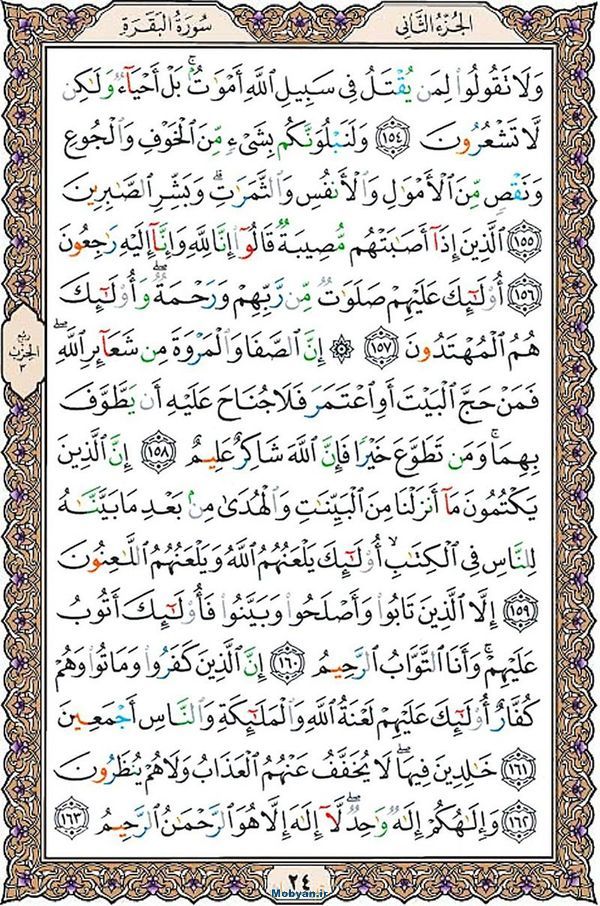 الجُزءُ الثَّانِي
سُورَةُ البَقَرَةِ
وَلَا تَقُولُوا۟ لِمَن يُقْتَلُ فِى سَبِيلِ ٱللَّهِ أَمْوَٰتٌۢ ۚ بَلْ أَحْيَآءٌ وَلَـٰكِن
لَّا تَشْعُرُونَ ١٥٤ وَلَنَبْلُوَنَّكُم بِشَىْءٍ مِّنَ ٱلْخَوْفِ وَٱلْجُوعِ
وَنَقْصٍ مِّنَ ٱلْأَمْوَٰلِ وَٱلْأَنفُسِ وَٱلثَّمَرَٰتِ ۗ وَبَشِّرِ ٱلصَّـٰبِرِينَ
١٥٥ ٱلَّذِينَ إِذَآ أَصَـٰبَتْهُم مُّصِيبَةٌ قَالُوٓا۟ إِنَّا لِلَّهِ وَإِنَّآ إِلَيْهِ رَٰجِعُونَ
١٥٦ أُو۟لَـٰٓئِكَ عَلَيْهِمْ صَلَوَٰتٌ مِّن رَّبِّهِمْ وَرَحْمَةٌ ۖ وَأُو۟لَـٰٓئِكَ
هُمُ ٱلْمُهْتَدُونَ ١٥٧ ۞ إِنَّ ٱلصَّفَا وَٱلْمَرْوَةَ مِن شَعَآئِرِ ٱللَّهِ ۖ
فَمَنْ حَجَّ ٱلْبَيْتَ أَوِ ٱعْتَمَرَ فَلَا جُنَاحَ عَلَيْهِ أَن يَطَّوَّفَ
بِهِمَا ۚ وَمَن تَطَوَّعَ خَيْرًا فَإِنَّ ٱللَّهَ شَاكِرٌ عَلِيمٌ ١٥٨ إِنَّ ٱلَّذِينَ
يَكْتُمُونَ مَآ أَنزَلْنَا مِنَ ٱلْبَيِّنَـٰتِ وَٱلْهُدَىٰ مِنۢ بَعْدِ مَا بَيَّنَّـٰهُ
لِلنَّاسِ فِى ٱلْكِتَـٰبِ ۙ أُو۟لَـٰٓئِكَ يَلْعَنُهُمُ ٱللَّهُ وَيَلْعَنُهُمُ ٱللَّـٰعِنُونَ
١٥٩ إِلَّا ٱلَّذِينَ تَابُوا۟ وَأَصْلَحُوا۟ وَبَيَّنُوا۟ فَأُو۟لَـٰٓئِكَ أَتُوبُ
عَلَيْهِمْ ۚ وَأَنَا ٱلتَّوَّابُ ٱلرَّحِيمُ ١٦٠ إِنَّ ٱلَّذِينَ كَفَرُوا۟ وَمَاتُوا۟ وَهُمْ
كُفَّارٌ أُو۟لَـٰٓئِكَ عَلَيْهِمْ لَعْنَةُ ٱللَّهِ وَٱلْمَلَـٰٓئِكَةِ وَٱلنَّاسِ أَجْمَعِينَ
١٦١ خَـٰلِدِينَ فِيهَا ۖ لَا يُخَفَّفُ عَنْهُمُ ٱلْعَذَابُ وَلَا هُمْ يُنظَرُونَ
١٦٢ وَإِلَـٰهُكُمْ إِلَـٰهٌ وَٰحِدٌ ۖ لَّآ إِلَـٰهَ إِلَّا هُوَ ٱلرَّحْمَـٰنُ ٱلرَّحِيمُ ١٦٣
ربع
الحزب
٣
٢٤
Mobyan.ir